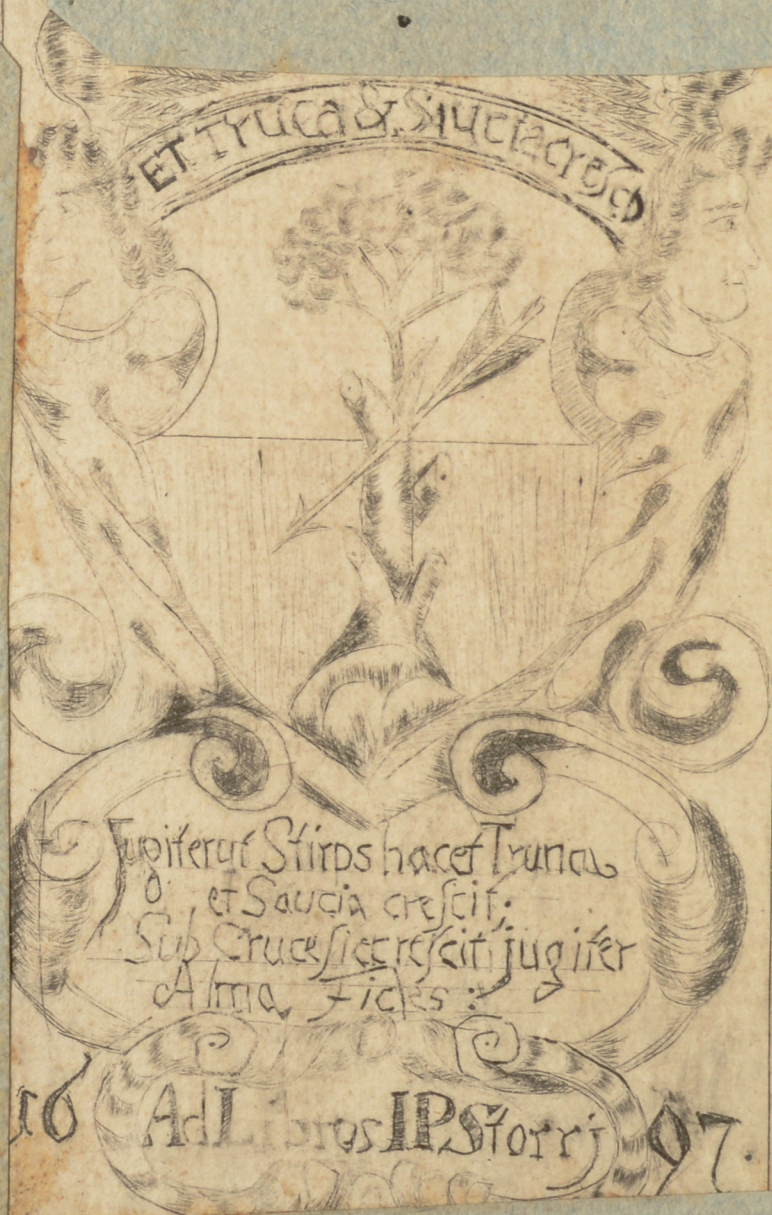 ET Truca & Siucia cresco
Jugiter ut Stirps hacet Trunca
et Saucia crescit;
Sub Cruce sic crescit jugiter
Alma Fides:
16 Ad Libros IP Storrj 97.